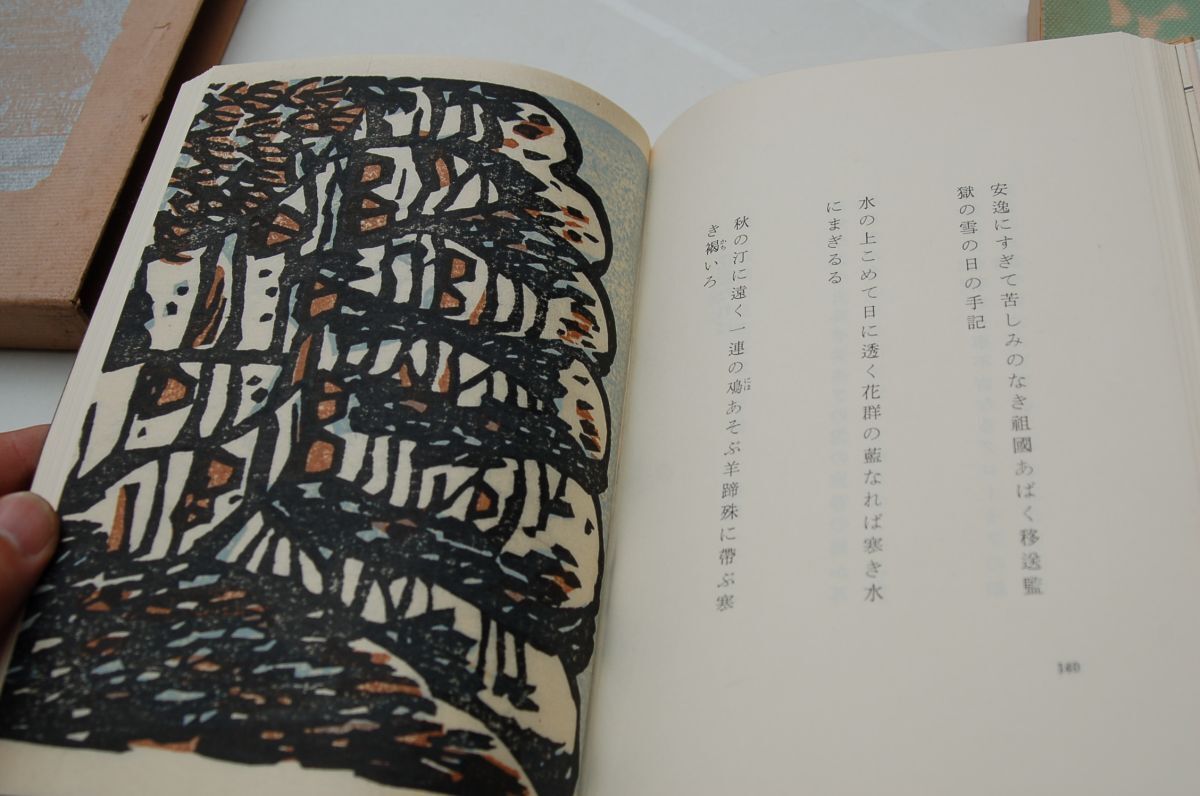 安逸にすぎて苦しみのなき祖國あばく移送監
獄の雪の日の手記
水の上こめて日に透く花群の藍なれば寒き水
にまぎるる
秋の汀に遠く一連のあそぶ羊蹄殊に帶ぶ寒
き褐いろ
160